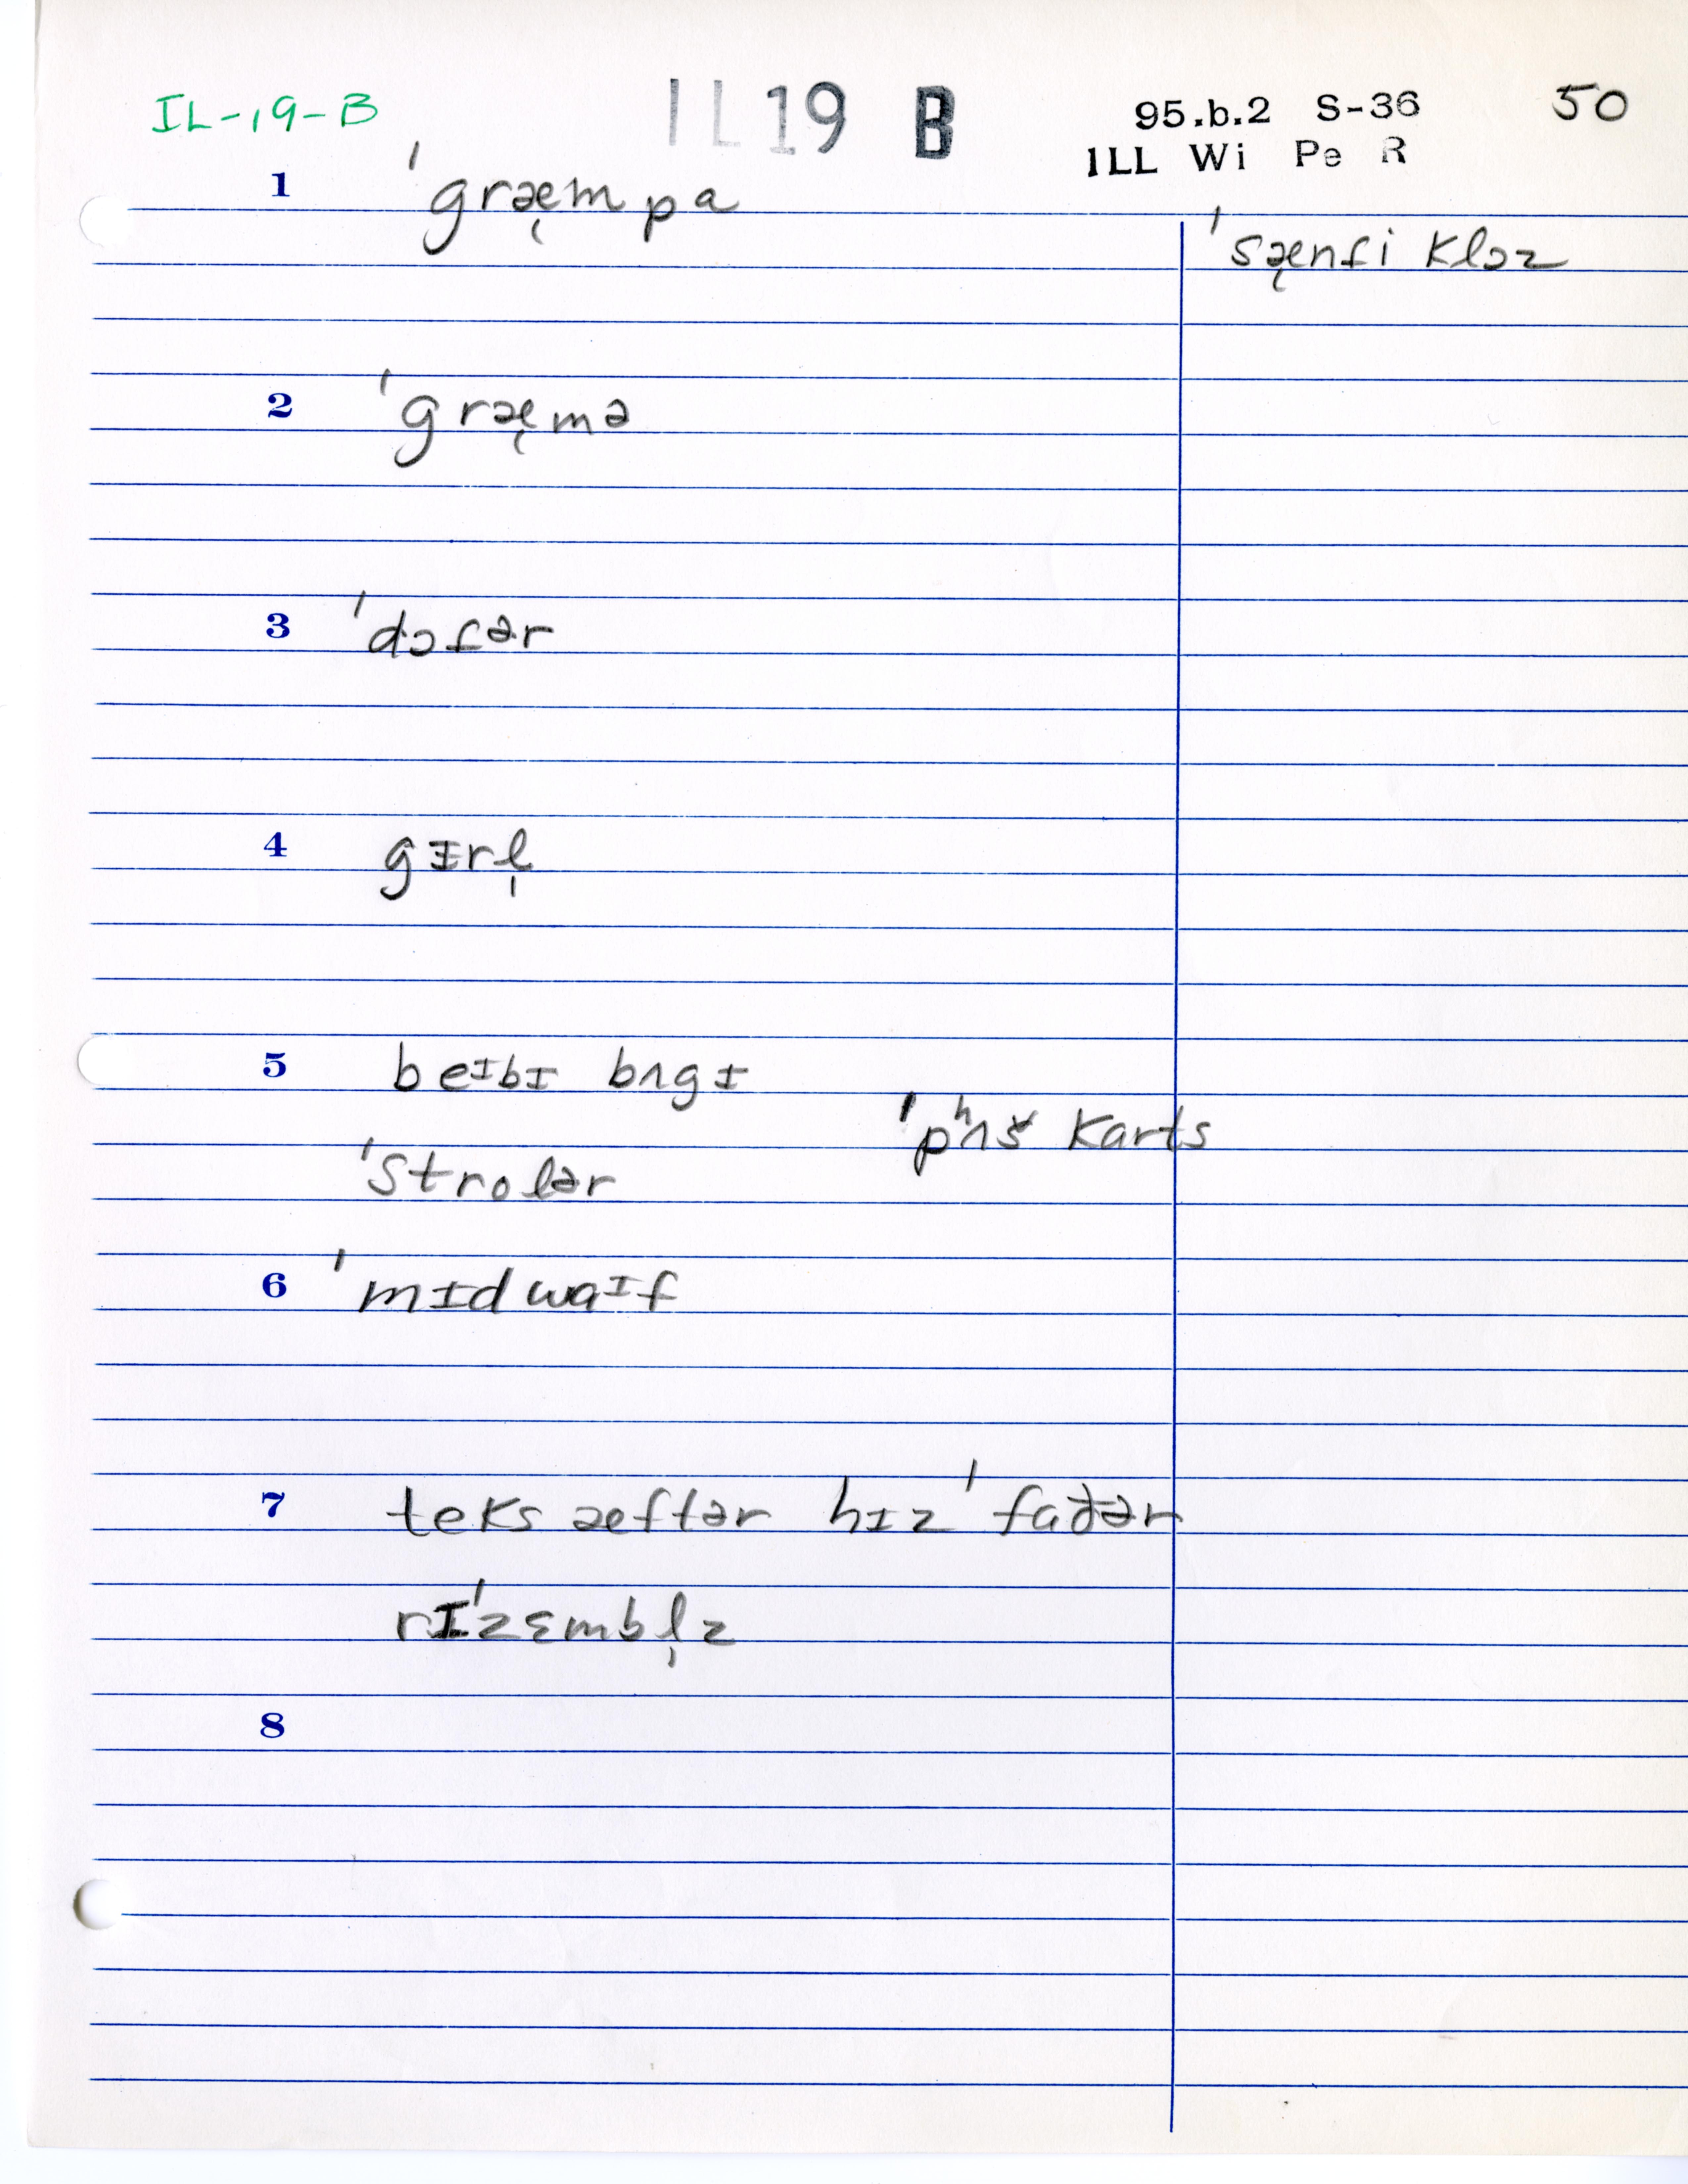 IL-19-B
IL19 B
95.b.2 S-36
ILL Wi Pe R
50
1 ˈgræ̨mpa
ˈsæ̨nɾi klɔz
2 ˈgræ̨mə
3 ˈdɔɾər
4 gɪrl̩
5 beᶦbɪ bʌgɪ
ˈpʰʌš karts
ˈstrolər
6 ˈmɪdwaᶦf
7 teks æftər hɪz ˈfađər
rɪˈzɛmbl̩z
8